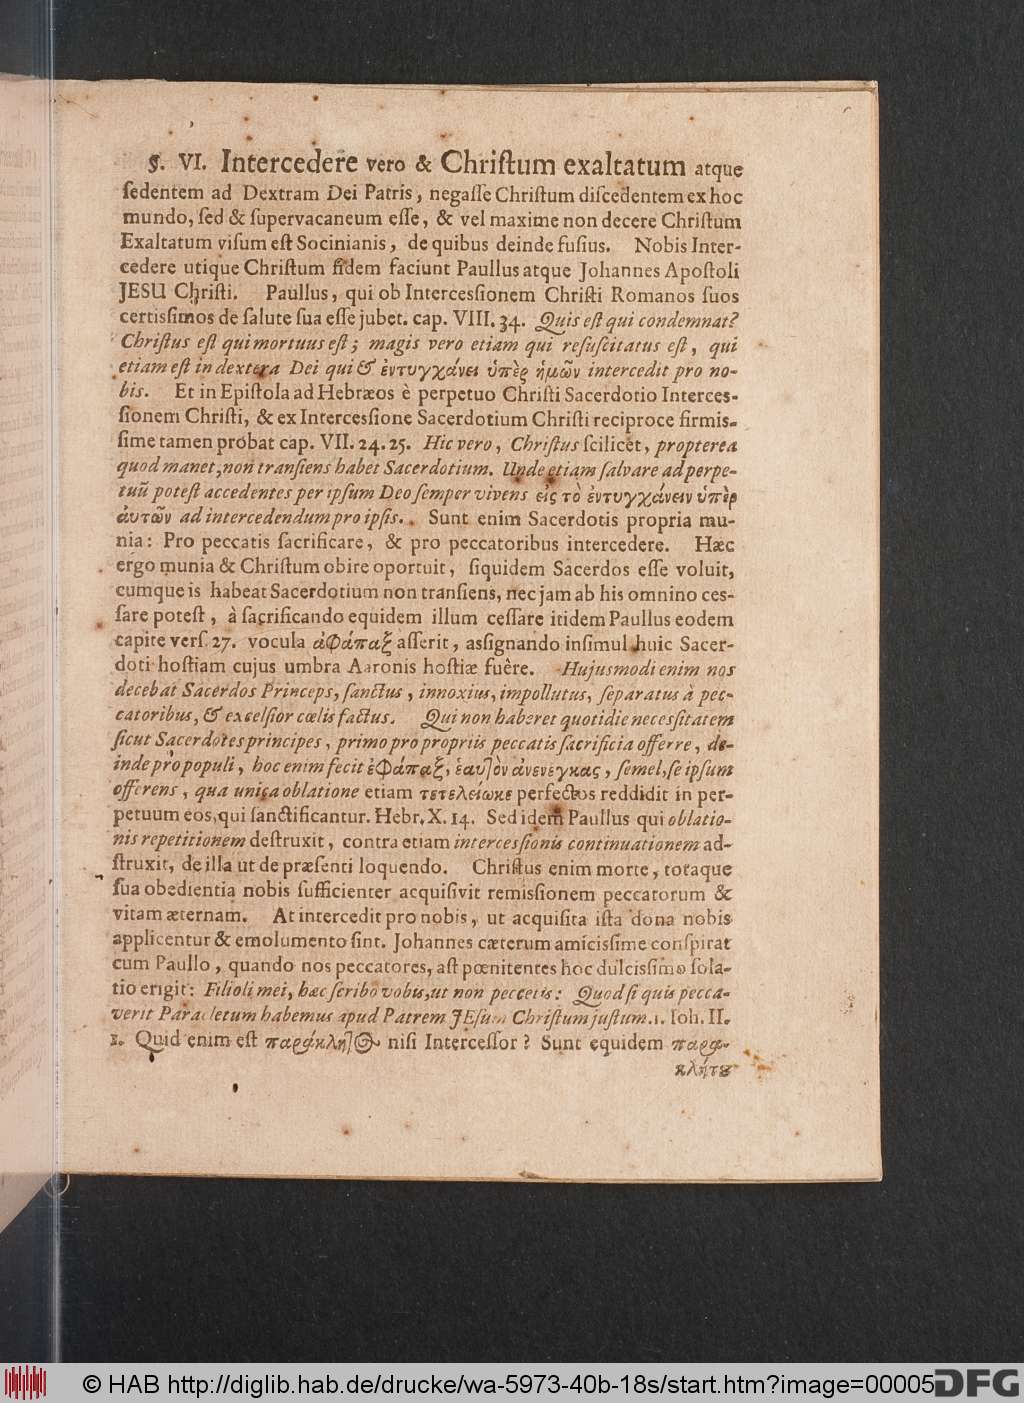 §. VI. Intercedere vero & Chriſtum exaltatum atque
ſedentem ad Dextram Dei Patris, negaſſe Chriſtum diſcedentem ex hoc
mundo, ſed & ſupervacaneum eſſe, & vel maxime non decere Chriſtum
Exaltatum viſum eſt Socinianis, de quibus deinde fuſius. Nobis Inter-
cedere utique Chriſtum fidem faciunt Paullus atque Johannes Apoſtoli
JESU Chriſti. Paullus, qui ob Interceſſionem Chriſti Romanos ſuos
certisſimos de ſalute ſua eſſe jubet. cap. VIII. 34. Quis eſt qui condemnat?
Chriſtus eſt qui mortuus eſt; magis vero etiam qui reſuſcitatus eſt, qui
etiam eſt in dextera Dei qui & ἐντυγχάνει ὑπὲρ ἡμῶν intercedit pro no-
bis. Et in Epiſtola ad Hebræos è perpetuo Chriſti Sacerdotio Interces-
ſionem Chriſti, & ex Interceſſione Sacerdotium Chriſti reciproce firmis-
ſime tamen probat cap. VII. 24. 25. Hic vero, Chriſtus ſcilicet, propterea
quod manet, non tranſiens habet Sacerdotium. Unde etiam ſalvare ad perpe-
tuũ poteſt accedentes per ipſum Deo ſemper vivens εἰς τὸ ἐντυγχάνειν ὑπὲρ
ἀυτῶν ad intercedendum pro ipſis. Sunt enim Sacerdotis propria mu-
nia: Pro peccatis ſacrificare, & pro peccatoribus intercedere. Hæc
ergo munia & Chriſtum obire oportuit, ſiquidem Sacerdos eſſe voluit,
cumque is habeat Sacerdotium non tranſiens, nec jam ab his omnino ces-
ſare poteſt, à ſacrificando equidem illum ceſſare itidem Paullus eodem
capite verſ. 27. vocula ἀφάπαξ aſſerit, asſignando inſimul huic Sacer-
doti hoſtiam cujus umbra Aaronis hoſtiæ fuêre. Hujusmodi enim nos
decebat Sacerdos Princeps, ſanctus, innoxius, impollutus, ſeparatus à pec-
catoribus, & excelſior cœlis factus. Qui non haberet quotidie necesſitatem
ſicut Sacerdotes principes, primo pro propriis peccatis ſacrificia offerre, de-
inde pro populi, hoc enim fecit ἐφάπαξ, ἑαυτὸν ἀνενέγκας, ſemel, ſe ipſum
offerens, qua unica oblatione etiam τετελείωκε perfectos reddidit in per-
petuum eos, qui ſanctificantur. Hebr. X. 14. Sed idem Paullus qui oblatio-
nis repetitionem deſtruxit, contra etiam intercesſionis continuationem ad-
ſtruxit, de illa ut de præſenti loquendo. Chriſtus enim morte, totaque
ſua obedientia nobis ſufficienter acquiſivit remisſionem peccatorum &
vitam æternam. At intercedit pro nobis, ut acquiſita iſta dona nobis
applicentur & emolumento ſint. Johannes cæterum amicisſime conſpirat
cum Paullo, quando nos peccatores, aſt pœnitentes hoc dulcisſimo ſola-
tio erigit: Filioli mei, hæc ſcribo vobis, ut non peccetis: Quod ſi quis pecca-
verit Paracletum habemus apud Patrem JEſum Chriſtum juſtum. 1. Ioh. II.
1. Quid enim eſt παράκλητ\@ niſi Interceſſor? Sunt equidem παρα-
κλήτȣ
© HAB http://diglib.hab.de/drucke/wa-5973-40b-18s/start.htm?image=00005
DFG